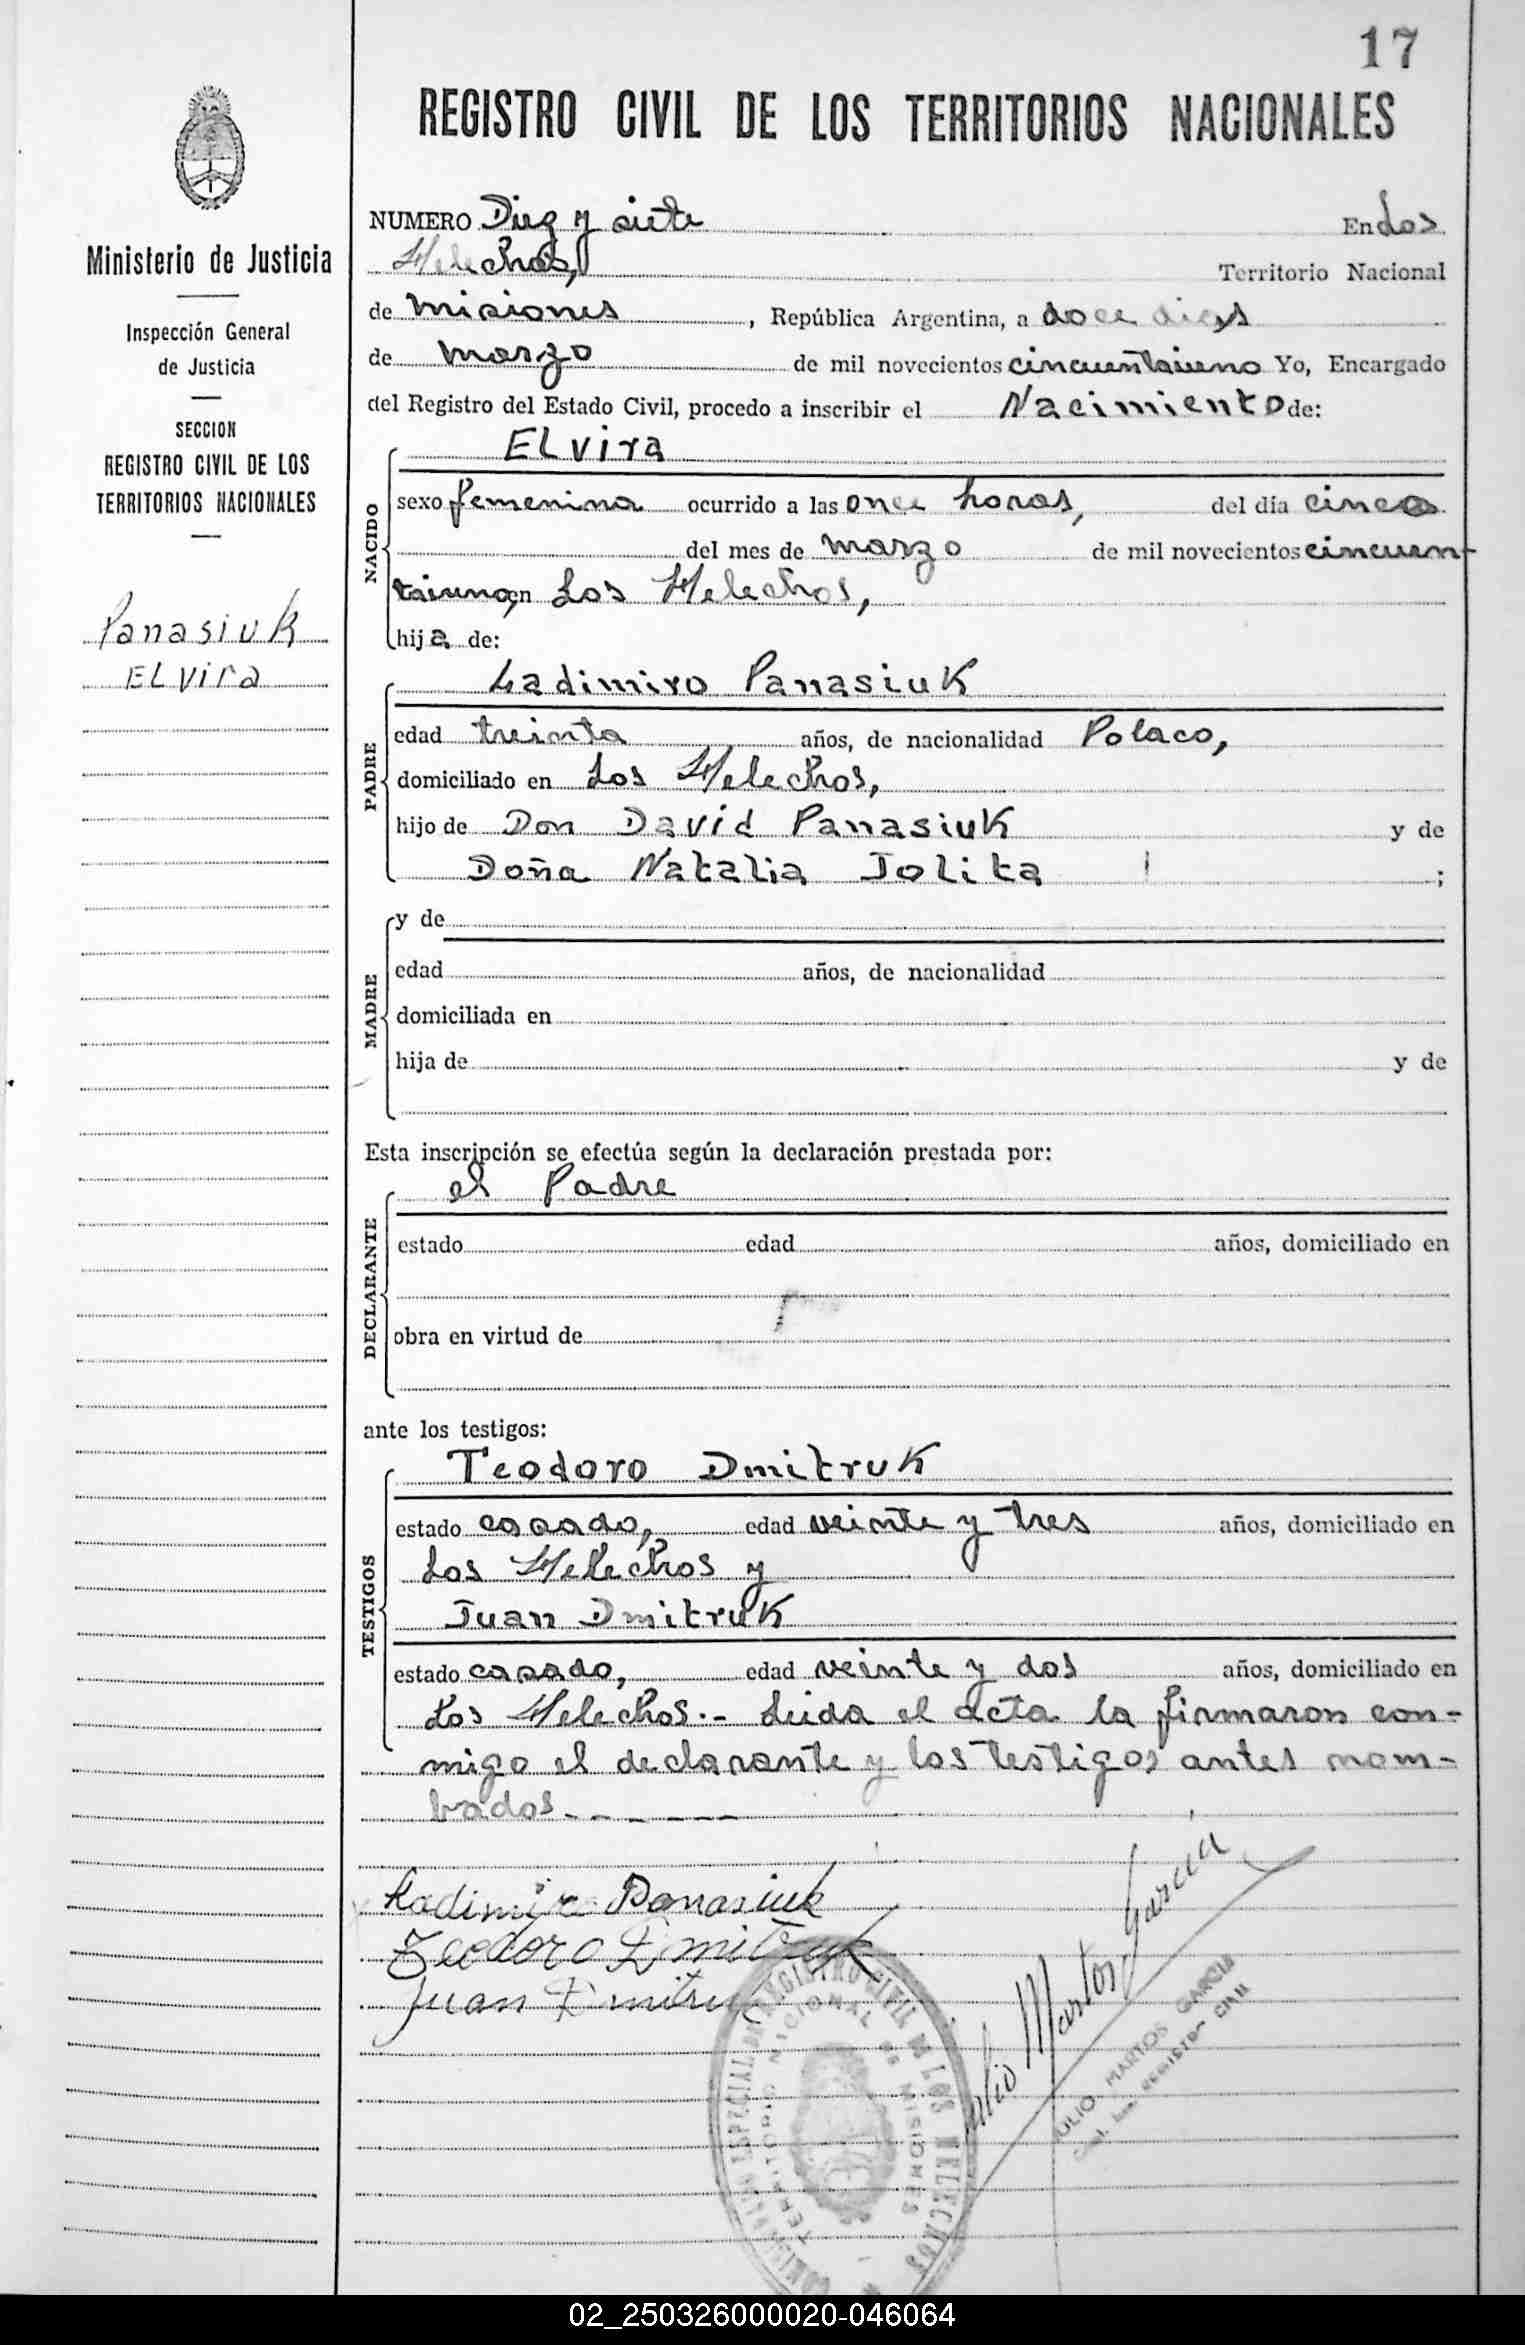 17
REGISTRO CIVIL DE LOS TERRITORIOS NACIONALES
Ministerio de Justicia
Inspección General
de Justicia
SECCION
REGISTRO CIVIL DE LOS
TERRITORIOS NACIONALES
Panasiuk
ELvira
NUMERO Diez y siete En Los
Helechos, Territorio Nacional
de Misiones, República Argentina, a doce dias
de Marzo de mil novecientos cincuentaiuno Yo, Encargado
del Registro del Estado Civil, procedo a inscribir el Nacimiento de:
NACIDO
ELvira
sexo femenina ocurrido a las once horas, del día cinco
del mes de Marzo de mil novecientos cincuen-
taiuno, en Los Helechos,
hija de:
PADRE
Ladimiro Panasiuk
edad treinta años, de nacionalidad Polaco,
domiciliado en Los Helechos,
hijo de Don David Panasiuk y de
Doña Natalia Jolita ;
MADRE
y de
edad años, de nacionalidad
domiciliada en
hija de y de
Esta inscripción se efectúa según la declaración prestada por:
DECLARANTE
el Padre
estado edad años, domiciliado en
obra en virtud de
ante los testigos:
TESTIGOS
Teodoro Dmitruk
estado casado, edad veinte y tres años, domiciliado en
Los Helechos y
Juan Dmitruk
estado casado, edad veinte y dos años, domiciliado en
Los Helechos.- Leida el acta la firmaron con-
migo el declarante y los testigos antes nom-
bados.- - - - -
Ladimiro Panasiuk
Teodoro Dmitruk
Juan Dmitruk
Julio Martos Garcia
JULIO MARTOS GARCIA
REGISTRO CIVIL
REGISTRO CIVIL DE LOS HELECHOS
TERRITORIO NACIONAL DE MISIONES
02_250326000020-046064